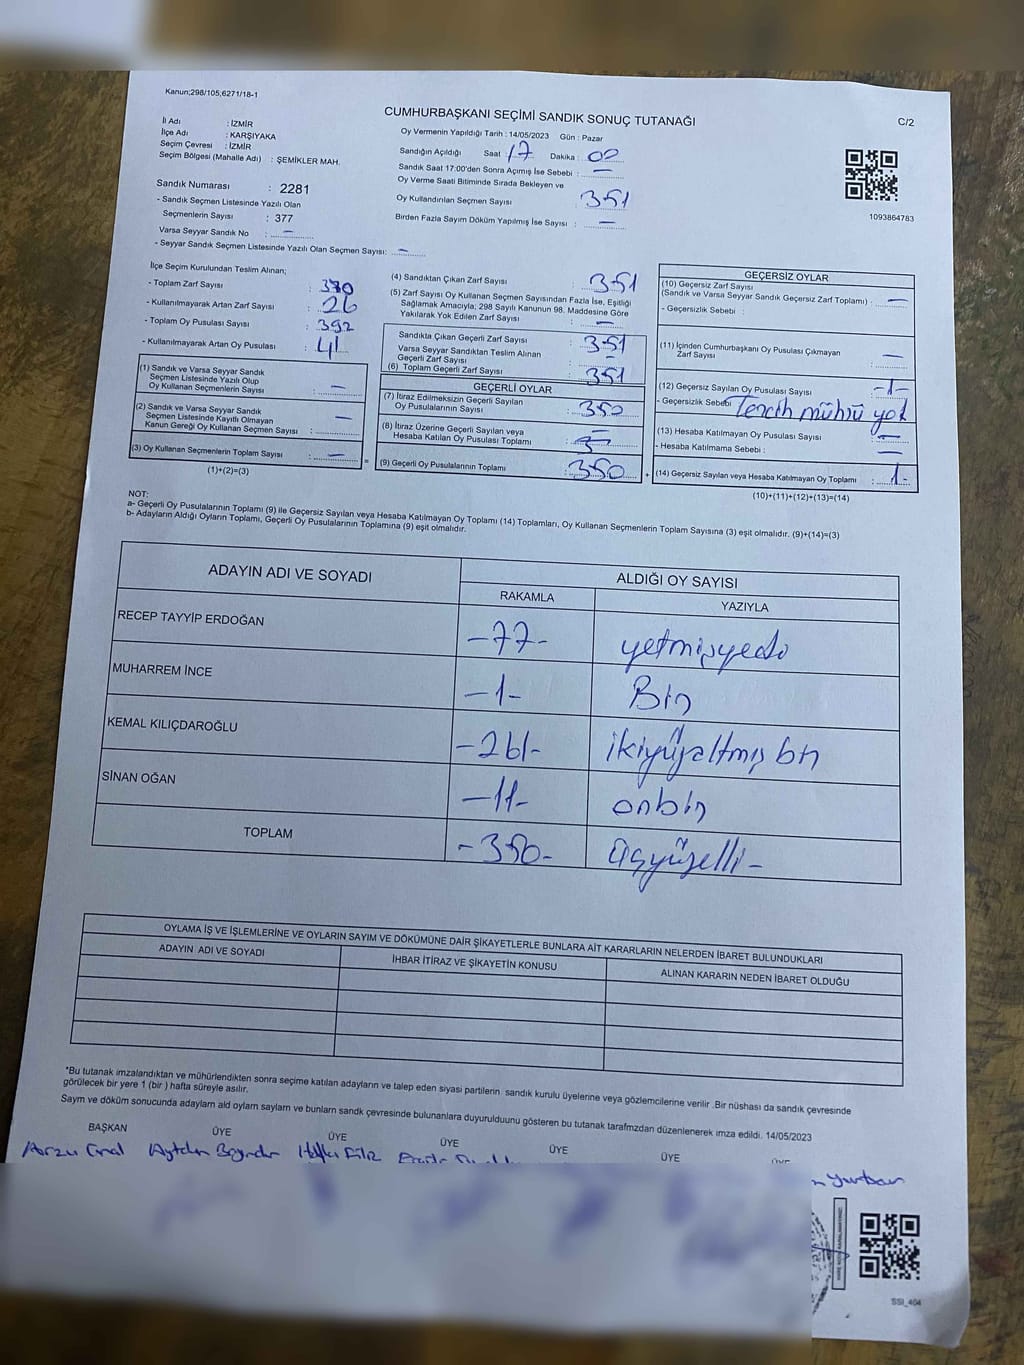 Kanun;298/105,6271/18-1
CUMHURBAŞKANI SEÇİMİ SANDIK SONUÇ TUTANAĞI
C/2
İl Adı : İZMİR
İlçe Adı : KARŞIYAKA
Seçim Çevresi : İZMİR
Seçim Bölgesi (Mahalle Adı) : ŞEMİKLER MAH.
Oy Vermenin Yapıldığı Tarih : 14/05/2023 Gün : Pazar
Sandığın Açıldığı Saat 17 Dakika : 00
Sandık Saat 17:00'den Sonra Açımış İse Sebebi : —
Oy Verme Saati Bitiminde Sırada Bekleyen ve
Oy Kullandırılan Seçmen Sayısı : 351
Birden Fazla Sayım Döküm Yapılmış İse Sayısı : —
1093864783
Sandık Numarası : 2281
- Sandık Seçmen Listesinde Yazılı Olan
Seçmenlerin Sayısı : 377
Varsa Seyyar Sandık No : —
- Seyyar Sandık Seçmen Listesinde Yazılı Olan Seçmen Sayısı: —
İlçe Seçim Kurulundan Teslim Alınan;
- Toplam Zarf Sayısı :
- Kullanılmayarak Artan Zarf Sayısı : 26
- Toplam Oy Pusulası Sayısı : 392
- Kullanılmayarak Artan Oy Pusulası : 41
(1) Sandık ve Varsa Seyyar Sandık
Seçmen Listesinde Yazılı Olup
Oy Kullanan Seçmenlerin Sayısı : —
(2) Sandık ve Varsa Seyyar Sandık
Seçmen Listesinde Kayıtlı Olmayan
Kanun Gereği Oy Kullanan Seçmen Sayısı : —
(3) Oy Kullanan Seçmenlerin Toplam Sayısı : —
(1)+(2)=(3)
(4) Sandıktan Çıkan Zarf Sayısı : 351
(5) Zarf Sayısı Oy Kullanan Seçmen Sayısından Fazla İse, Eşitliği
Sağlamak Amacıyla; 298 Sayılı Kanunun 98. Maddesine Göre
Yakılarak Yok Edilen Zarf Sayısı : —
Sandıkta Çıkan Geçerli Zarf Sayısı : 351
Varsa Seyyar Sandıktan Teslim Alınan
Geçerli Zarf Sayısı : —
(6) Toplam Geçerli Zarf Sayısı : 351
GEÇERLİ OYLAR
(7) İtiraz Edilmeksizin Geçerli Sayılan
Oy Pusulalarının Sayısı : 350
(8) İtiraz Üzerine Geçerli Sayılan veya
Hesaba Katılan Oy Pusulası Toplamı :
(9) Geçerli Oy Pusulalarının Toplamı : 350
GEÇERSİZ OYLAR
(10) Geçersiz Zarf Sayısı
(Sandık ve Varsa Seyyar Sandık Geçersiz Zarf Toplamı) : —
- Geçersizlik Sebebi :
(11) İçinden Cumhurbaşkanı Oy Pusulası Çıkmayan
Zarf Sayısı : —
(12) Geçersiz Sayılan Oy Pusulası Sayısı : -1-
- Geçersizlik Sebebi Tercih mührü yok
(13) Hesaba Katılmayan Oy Pusulası Sayısı : —
- Hesaba Katılmama Sebebi : —
(14) Geçersiz Sayılan veya Hesaba Katılmayan Oy Toplamı : 1-
(10)+(11)+(12)+(13)=(14)
NOT:
a- Geçerli Oy Pusulalarının Toplamı (9) ile Geçersiz Sayılan veya Hesaba Katılmayan Oy Toplamı (14) Toplamları, Oy Kullanan Seçmenlerin Toplam Sayısına (3) eşit olmalıdır. (9)+(14)=(3)
b- Adayların Aldığı Oyların Toplamı, Geçerli Oy Pusulalarının Toplamına (9) eşit olmalıdır.
ADAYIN ADI VE SOYADI
ALDIĞI OY SAYISI
RAKAMLA
YAZIYLA
RECEP TAYYİP ERDOĞAN -77- yetmişyedi
MUHARREM İNCE -1- Bir
KEMAL KILIÇDAROĞLU -261- ikiyüzaltmış bir
SİNAN OĞAN -11- onbir
TOPLAM -350- üçyüzelli-
OYLAMA İŞ VE İŞLEMLERİNE VE OYLARIN SAYIM VE DÖKÜMÜNE DAİR ŞİKAYETLERLE BUNLARA AİT KARARLARIN NELERDEN İBARET BULUNDUKLARI
ADAYIN ADI VE SOYADI
İHBAR İTİRAZ VE ŞİKAYETİN KONUSU
ALINAN KARARIN NEDEN İBARET OLDUĞU
*Bu tutanak imzalandıktan ve mühürlendikten sonra seçime katılan adayların ve talep eden siyasi partilerin sandık kurulu üyelerine veya gözlemcilerine verilir .Bir nüshası da sandık çevresinde
görülecek bir yere 1 (bir ) hafta süreyle asılır.
Sayım ve döküm sonucunda adayların ald oyların sayları ve bunların sandk çevresinde bulunanlara duyurulduunu gösteren bu tutanak tarafmzdan düzenlenerek imza edildi. 14/05/2023
BAŞKAN ÜYE ÜYE ÜYE ÜYE ÜYE
Arzu
SSI_404